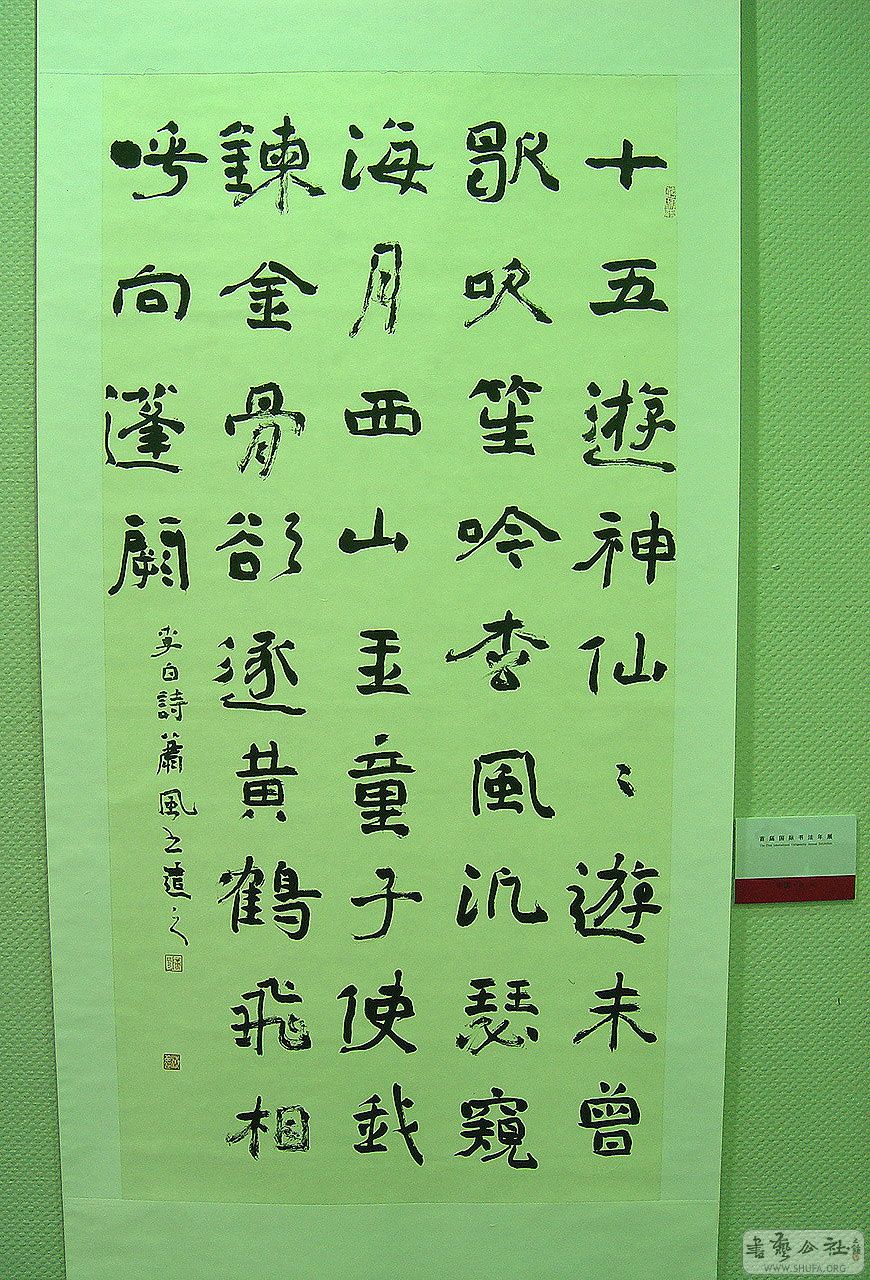 十五遊神仙〻遊未曾
歇吹笙吟枩風汎瑟窺
海月西山玉童子使我
鍊金骨欲逐黃鶴飛相
呼向蓬闕
李白詩蕭風
首届国际书法年展
The First International Calligraphy Annual Exhibition
書藝公社
WWW.SHUFA.ORG